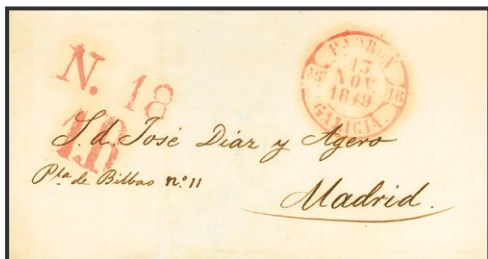 N. 18
PADRON
13
NOV.
1849
GALICIA.
S.d. José Diaz y Agero
Pta de Bilbao nº 11
Madrid.